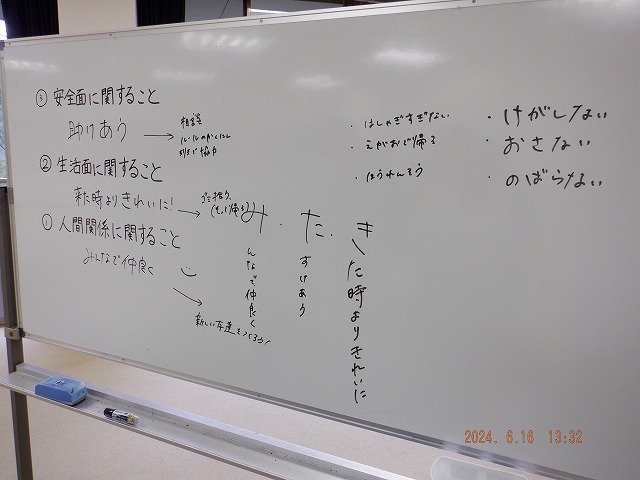 ③ 安全面に関すること
助けあう → 相談
ルールのかくにん
おうちで協力
② 生活面に関すること
来た時よりきれいに! → ゴミ拾う
(もち帰る)
① 人間関係に関すること
みんなで仲良く
新しい友達をつくろう!
み.た.き
んなで仲良く
すけあう
た時よりきれいに
・はしゃぎすぎない
・えがおで帰る
・ほうれんそう
・けがしない
・おさない
・のばらない
2024. 6.16 13:32